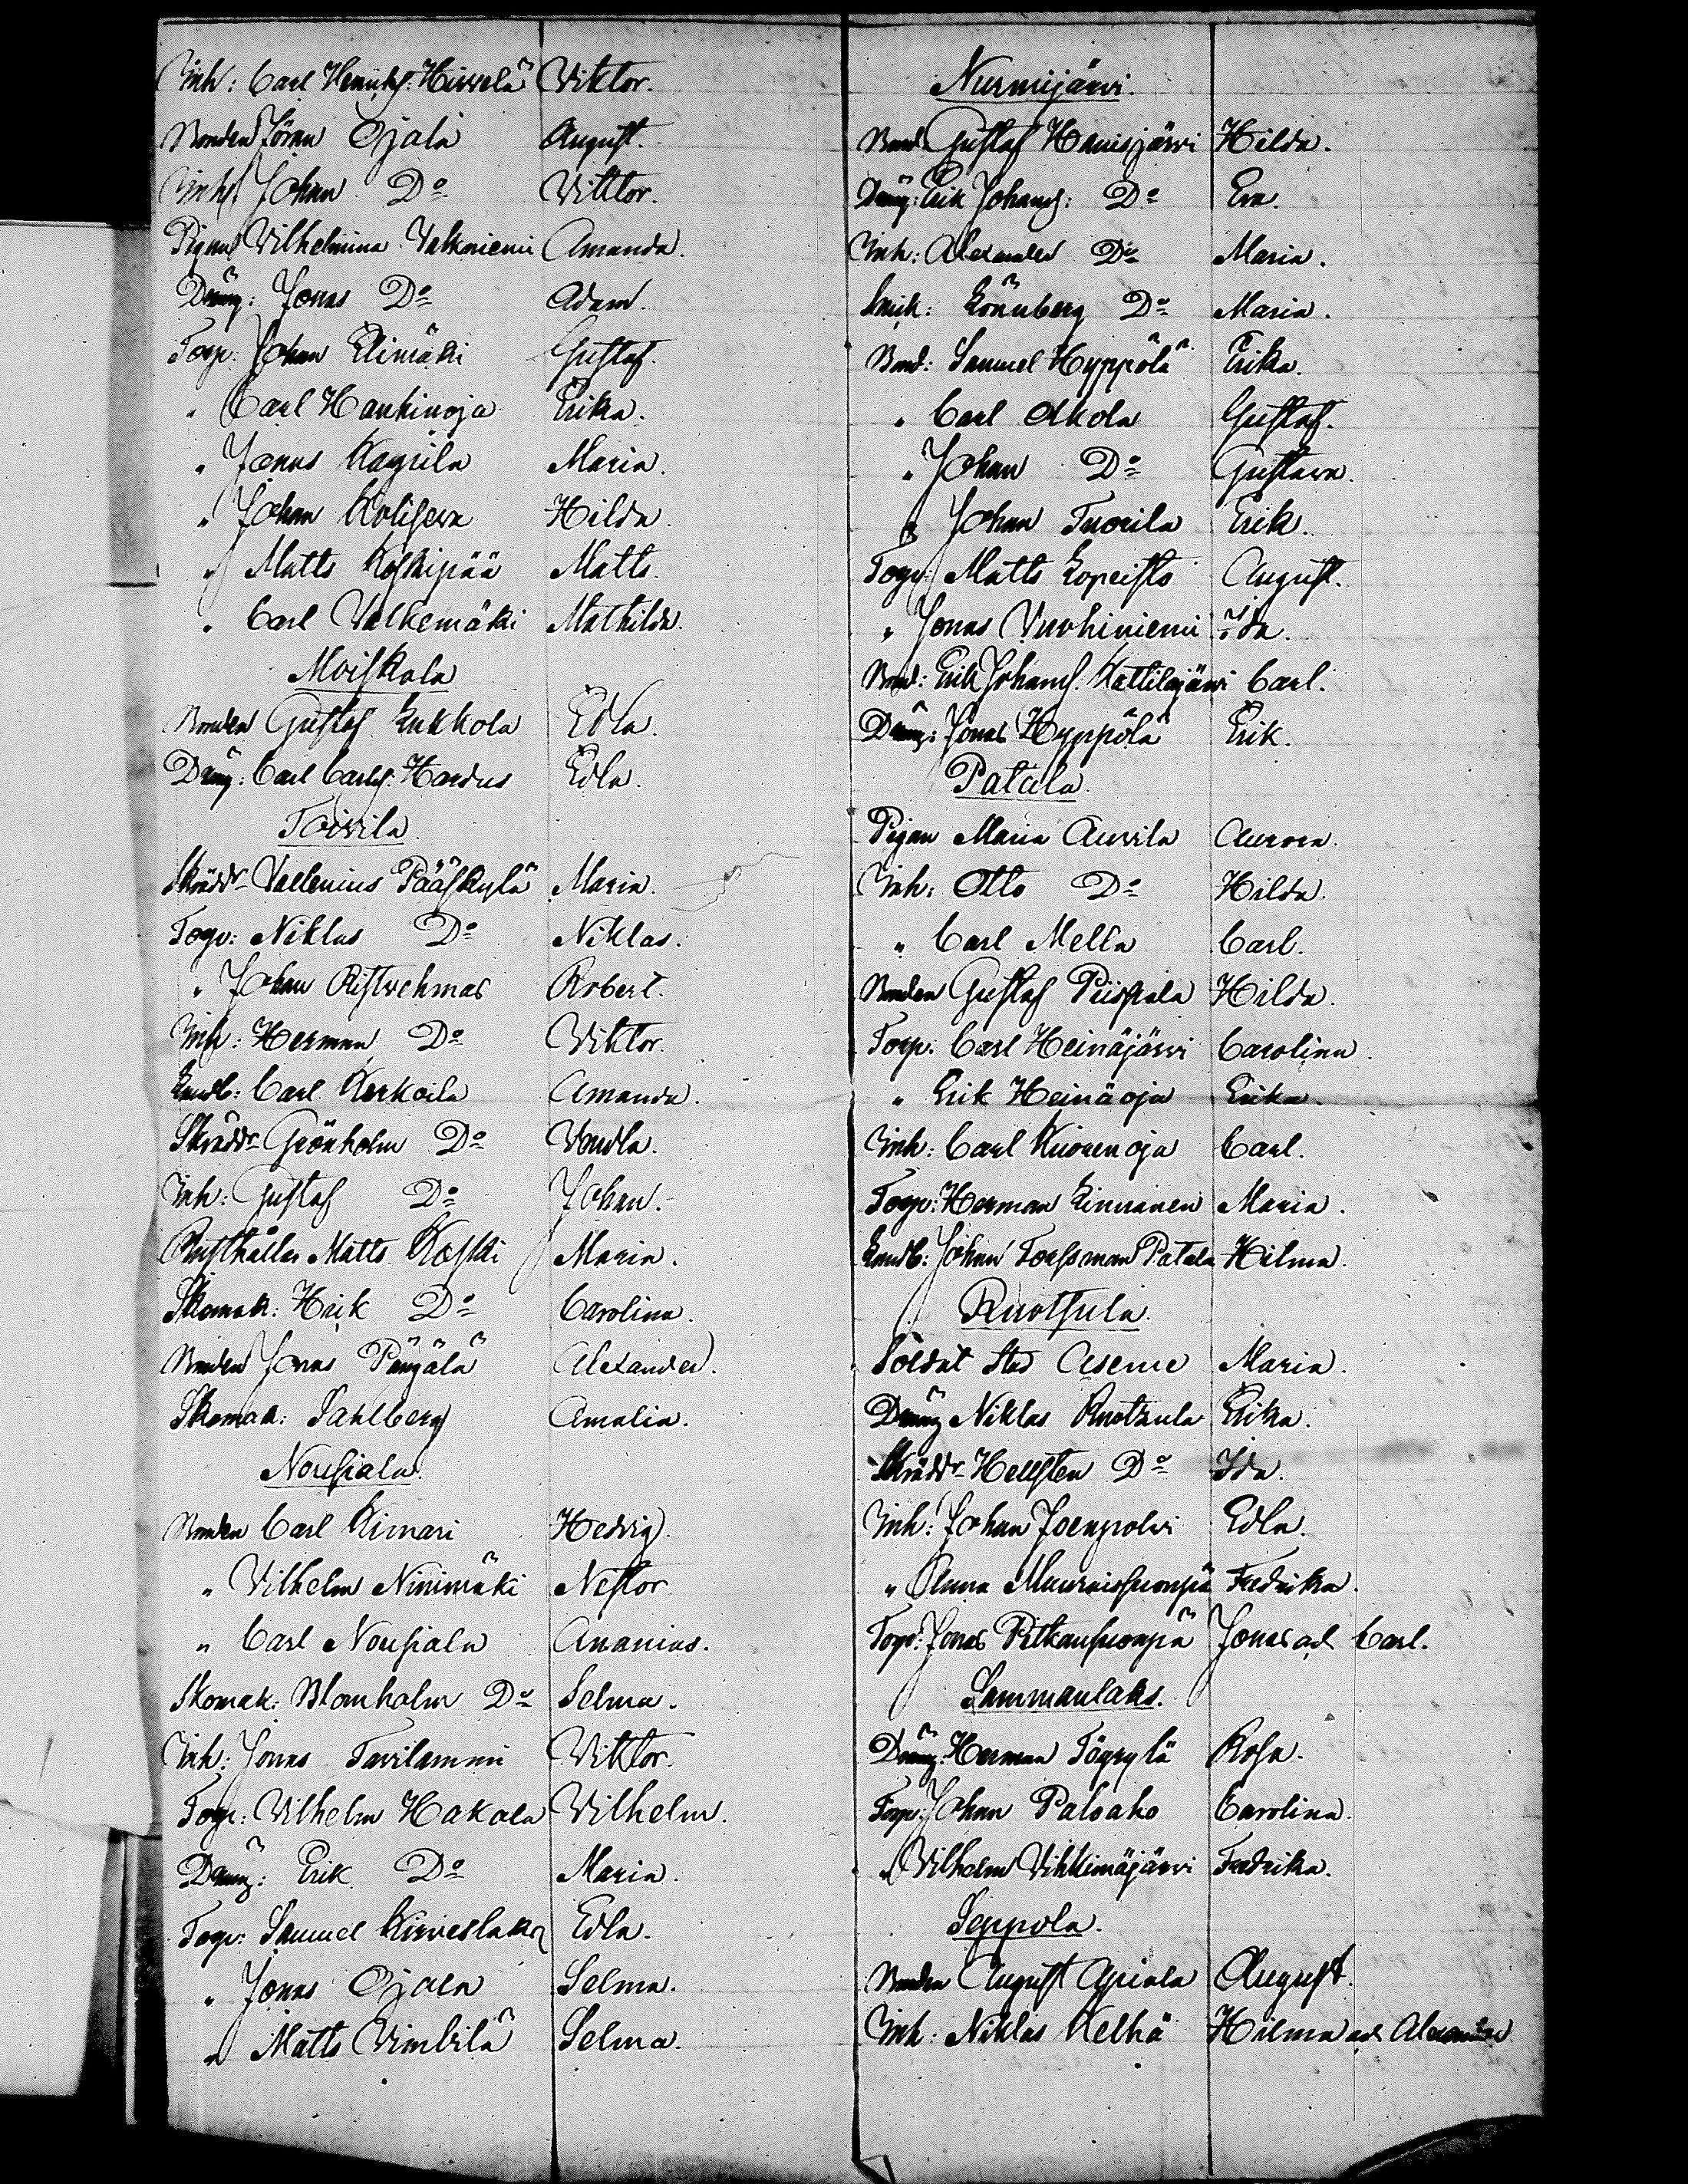 Inh: Carl Henriks: Hirvelä Viktor.
Bonden Jöran Ojala August.
Inh: Johan Do Viktor.
Pigan Vilhelmina Valkniemi Amanda.
Dräng: Jonas Do Adam.
Torp: Johan Elimäki Gustaf.
" Carl Hankinoja Erika.
" Jonas Kayrila Maria.
" Johan Koliseva Hilda.
" Matts Koskipää Matts.
" Carl Valkemäki Mathilda.
Moiskala
Bonden Gustaf Kukkola Edla.
Dräng: Carl Carls: Hardus Edla.
Toivila
Skräddr Vallenius Pääskylä Maria.
Torp: Niklas Do Niklas.
" Johan Ristvehmas Robert.
Inh: Herman Do Viktor.
Landb: Carl Kerkoila Amanda.
Skräddr Grönholm Do Vendla.
Inh: Gustaf Do Johan.
Rusthållar Matts Koski Maria.
Skomak: Herik Do Carolina.
Bonden Jonas Pängälä Alexander.
Skomak: Sahlberg Amalia.
Nousiala
Bonden Carl Kimari Hedvig.
" Vilhelm Ninimäki Nestor
" Carl Nousiala Ananias.
Skomak: Blomholm Do Selma.
Inh: Jonas Tavilammi Viktor.
Torp: Vilhelm Hakala Vilhelm.
Dräng: Erik Do Maria.
Torp: Samuel Kirveslaks Edla.
" Jonas Ojala Selma.
" Matts Vimbilä Selma.
Nurmijärvi.
Bond. Gustaf Hanisjärvi Hilda.
Dräng: Erik Johans: Do Eva.
Inh: Alexander Do Maria.
Smik: Lönnberg Do Maria.
Bond: Samuel Hyppölä Erika.
" Carl Akola Gustaf.
" Johan Do Gustava.
" Johan Tuorila Erik.
Torp: Matts Lopeisto August.
" Jonas Vuohiniemi Ida.
Bond: Erik Johans. Kattilajärvi Carl.
Dräng: Jonas Hyppölä Erik.
Patala
Pigan Maria Auvila Aurora.
Inh: Otto Do Hilda.
" Carl Mella Carl.
Bonden Gustaf Piispala Hilda.
Torp: Carl Heinäjärvi Carolina.
" Erik Heinäoja Erika.
Inh: Carl Kuorenoja Carl.
Torp: Herman Linnanen Maria.
Landb: Johan Forssman Patala Hilma.
Ruotsula
Soldat Sted Aseme Maria.
Dräng Niklas Ruotzula Erika.
Skräddr Hellsten Do Ida.
Inh: Johan Joenpolvi Edla.
" Fredrika.
Torp: Jonas Pitkänsuonpä Jonas och Carl.
Sammanlaks.
Dräng: Herman Tögrylä Rosa.
Torp: Johan Paloaho Carolina.
" Vilhelm Vihkimäjärvi Fredrika.
Seppola.
Bonden August Apiala August.
Inh: Niklas Kelhä Hilma och Alexander